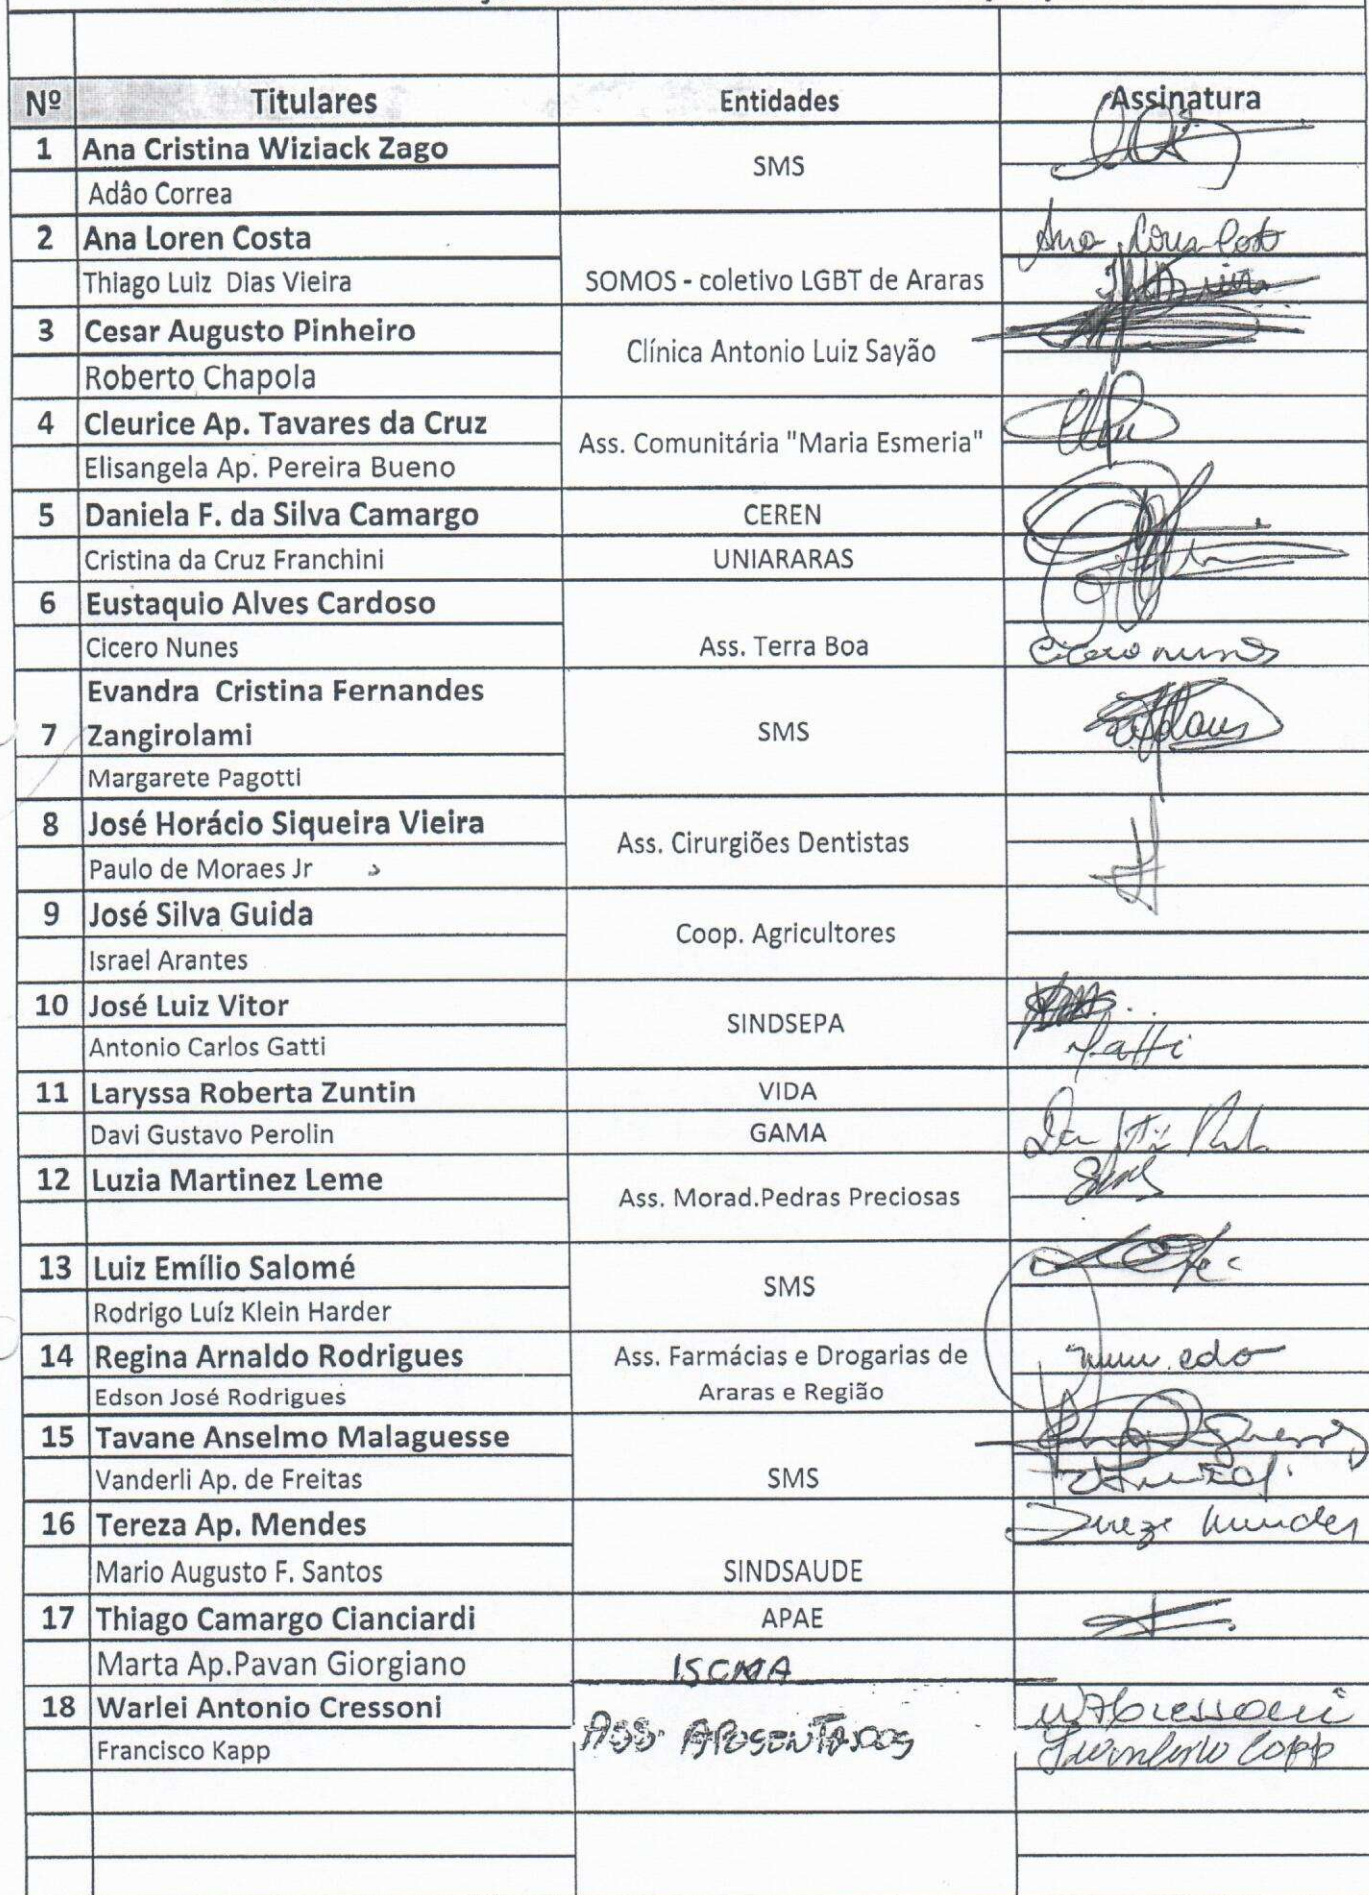 Nº Titulares Entidades Assinatura
1 Ana Cristina Wiziack Zago
SMS
Adâo Correa
2 Ana Loren Costa
Thiago Luiz Dias Vieira SOMOS - coletivo LGBT de Araras
3 Cesar Augusto Pinheiro
Clínica Antonio Luiz Sayão
Roberto Chapola
4 Cleurice Ap. Tavares da Cruz
Ass. Comunitária "Maria Esmeria"
Elisangela Ap. Pereira Bueno
5 Daniela F. da Silva Camargo CEREN
Cristina da Cruz Franchini UNIARARAS
6 Eustaquio Alves Cardoso
Cicero Nunes Ass. Terra Boa Cicero nunes
Evandra Cristina Fernandes
7 Zangirolami SMS
Margarete Pagotti
8 José Horácio Siqueira Vieira
Ass. Cirurgiões Dentistas
Paulo de Moraes Jr
9 José Silva Guida
Coop. Agricultores
Israel Arantes
10 José Luiz Vitor
SINDSEPA
Antonio Carlos Gatti Gatti
11 Laryssa Roberta Zuntin VIDA
Davi Gustavo Perolin GAMA
12 Luzia Martinez Leme
Ass. Morad.Pedras Preciosas
13 Luiz Emílio Salomé
SMS
Rodrigo Luíz Klein Harder
14 Regina Arnaldo Rodrigues Ass. Farmácias e Drogarias de
Edson José Rodrigues Araras e Região
15 Tavane Anselmo Malaguesse
Vanderli Ap. de Freitas SMS
16 Tereza Ap. Mendes
Mario Augusto F. Santos SINDSAUDE
17 Thiago Camargo Cianciardi APAE
Marta Ap.Pavan Giorgiano ISCMA
18 Warlei Antonio Cressoni WACressoni
Francisco Kapp ASS. APOSENTADOS